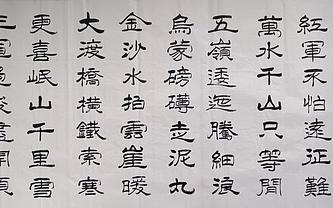 紅軍不怕遠征難
萬水千山只等閒
五嶺逶迤騰細浪
烏蒙磅礴走泥丸
金沙水拍雲崖暖
大渡橋橫鐵索寒
更喜岷山千里雪